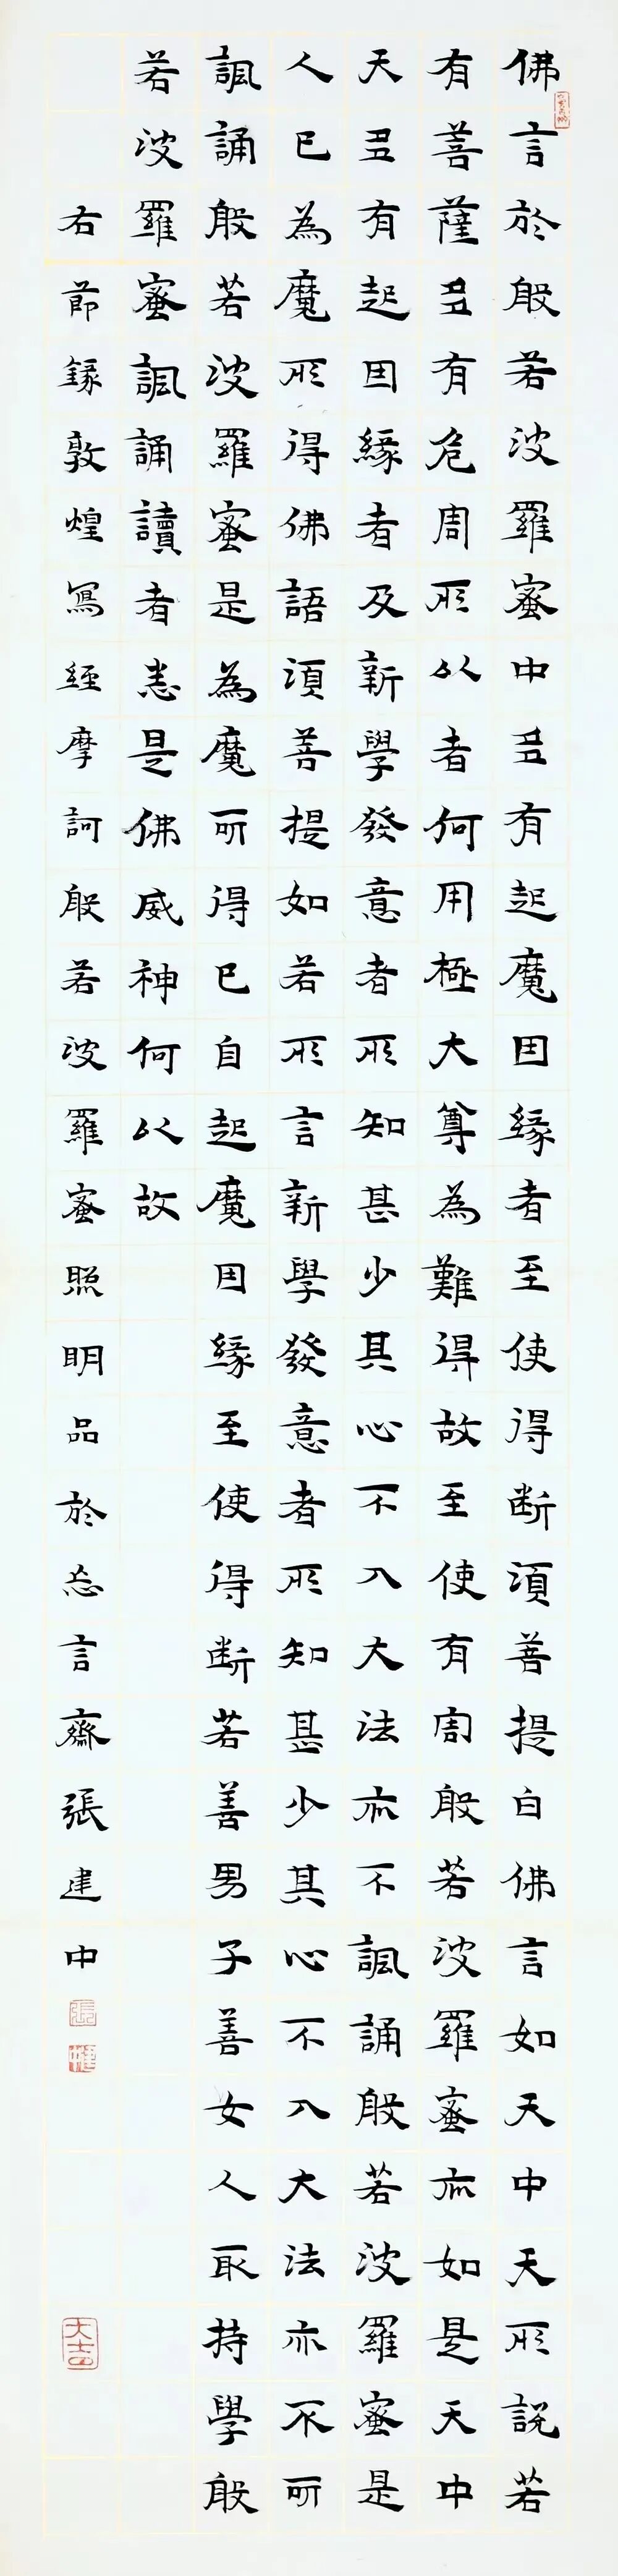 佛言於般若波羅蜜中多有起魔因緣者至使得断須菩提白佛言如天中天所說若
有菩薩多有危周所以者何用極大尊為難得故至使有周般若波羅蜜亦如是天中
天多有起因緣者及新學發意者所知甚少其心不入大法亦不諷誦般若波羅蜜是
人已為魔所得佛語須菩提如若所言新學發意者所知甚少其心不入大法亦不可
諷誦般若波羅蜜是為魔可得已自起魔因緣至使得断若善男子善女人取持學般
若波羅蜜諷誦讀者悉是佛威神何以故
右節錄敦煌寫經摩訶般若波羅蜜照明品於忘言齋張建中
張
大吉